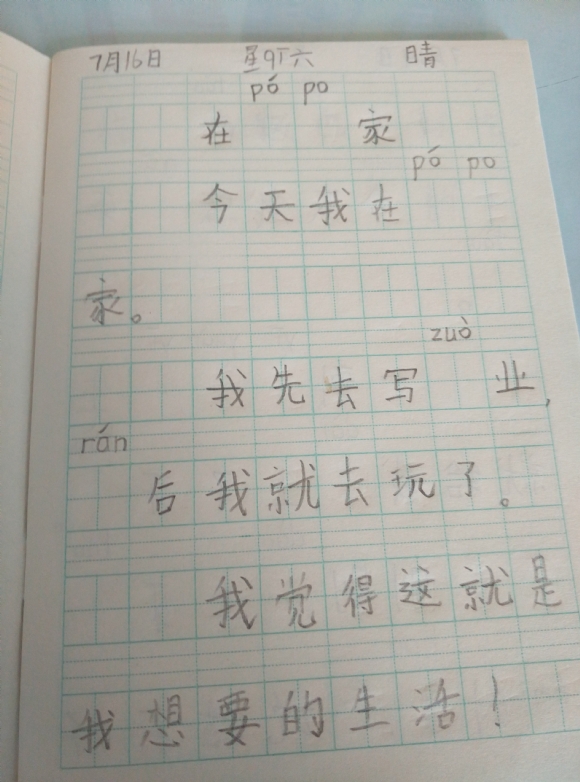 7月16日 星期六 晴
pó po
在 家
pó po
今天我在
家。
zuò
我先去写 业,
rán
后我就去玩了。
我觉得这就是
我想要的生活!